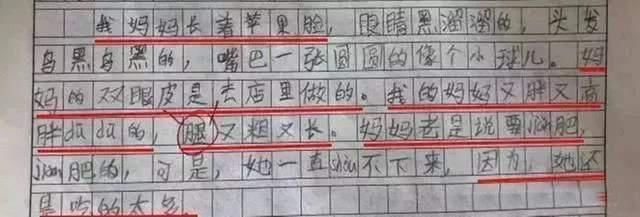 我妈妈长着苹果脸，眼睛黑溜溜的，头发
乌黑乌黑的，嘴巴一张圆圆的像个小球儿。妈
妈的双眼皮是去店里做的。我的妈妈又胖又高
胖dūdū的，腿又粗又长。妈妈老是说要jiǎn肥，
jiǎn肥的，可是，她一直shòu不下来，因为，她还
是吃的太多。